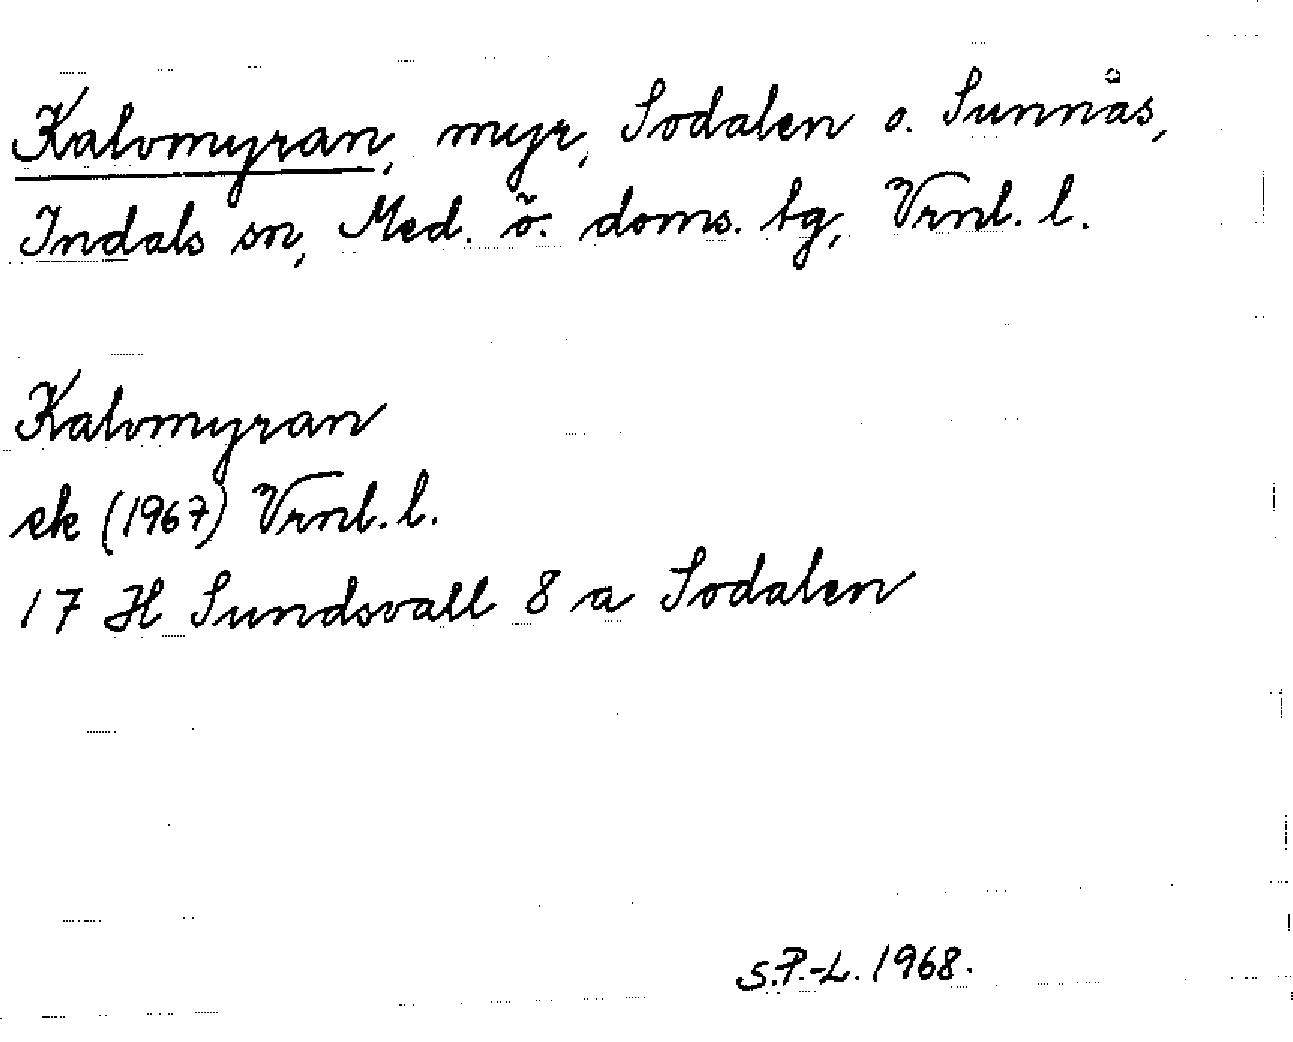 Kalvmyran, myr, Sodalen o. Sunnås,
Indals sn, Med. ö. doms. tg, Vrnl. l.
Kalvmyran
ek (1967) Vrnl. l.
17 H Sundsvall 8 a Sodalen
S.P.-L. 1968.